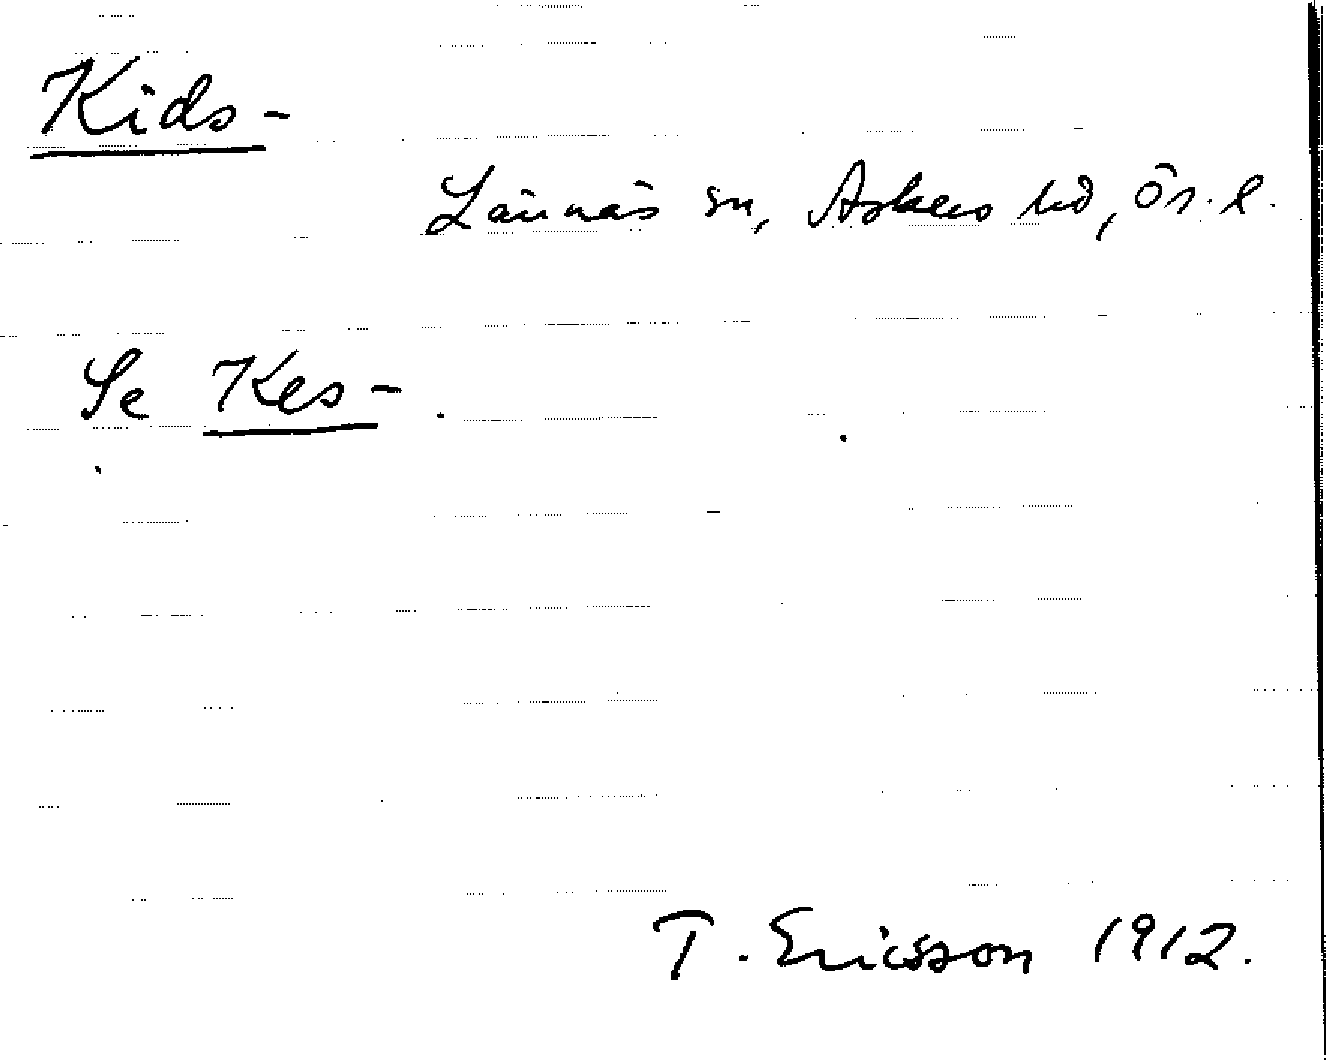 Kids-
Lännäs sn, Askers hd, Ör. l.
Se Kes- .
T. Ericsson 1912.